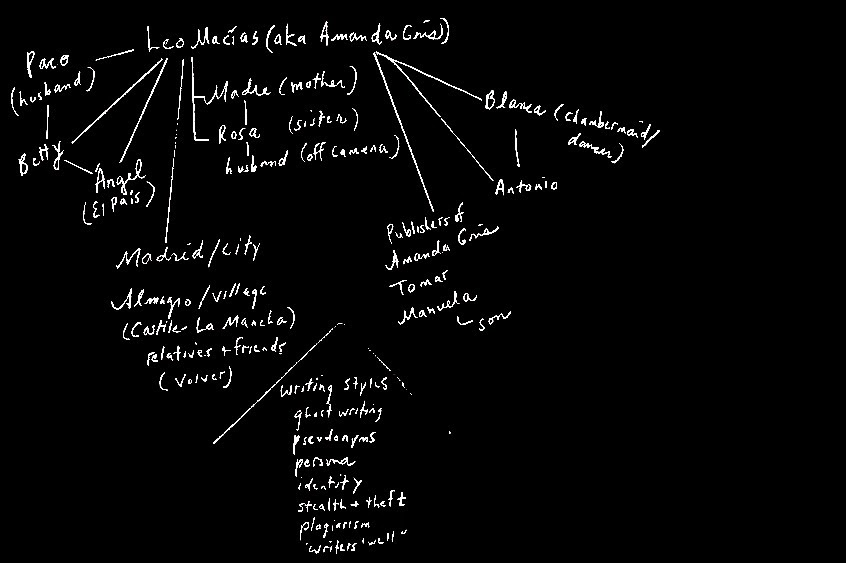 Leo Macías (aka Amanda Gris)
Paco
(husband)
Betty
Ángel
(El País)
Madre (mother)
Rosa (sister)
husband (off camera)
Blanca (chambermaid/
dancer)
Antonio
Publishers of
Amanda Gris
Tomar
Manuela
son
Madrid/City
Almagro/village
(Castile La Mancha)
relatives + friends
(Volver)
Writing styles
ghost writing
pseudonyms
persona
identity
stealth + theft
plagiarism
"writers' well"